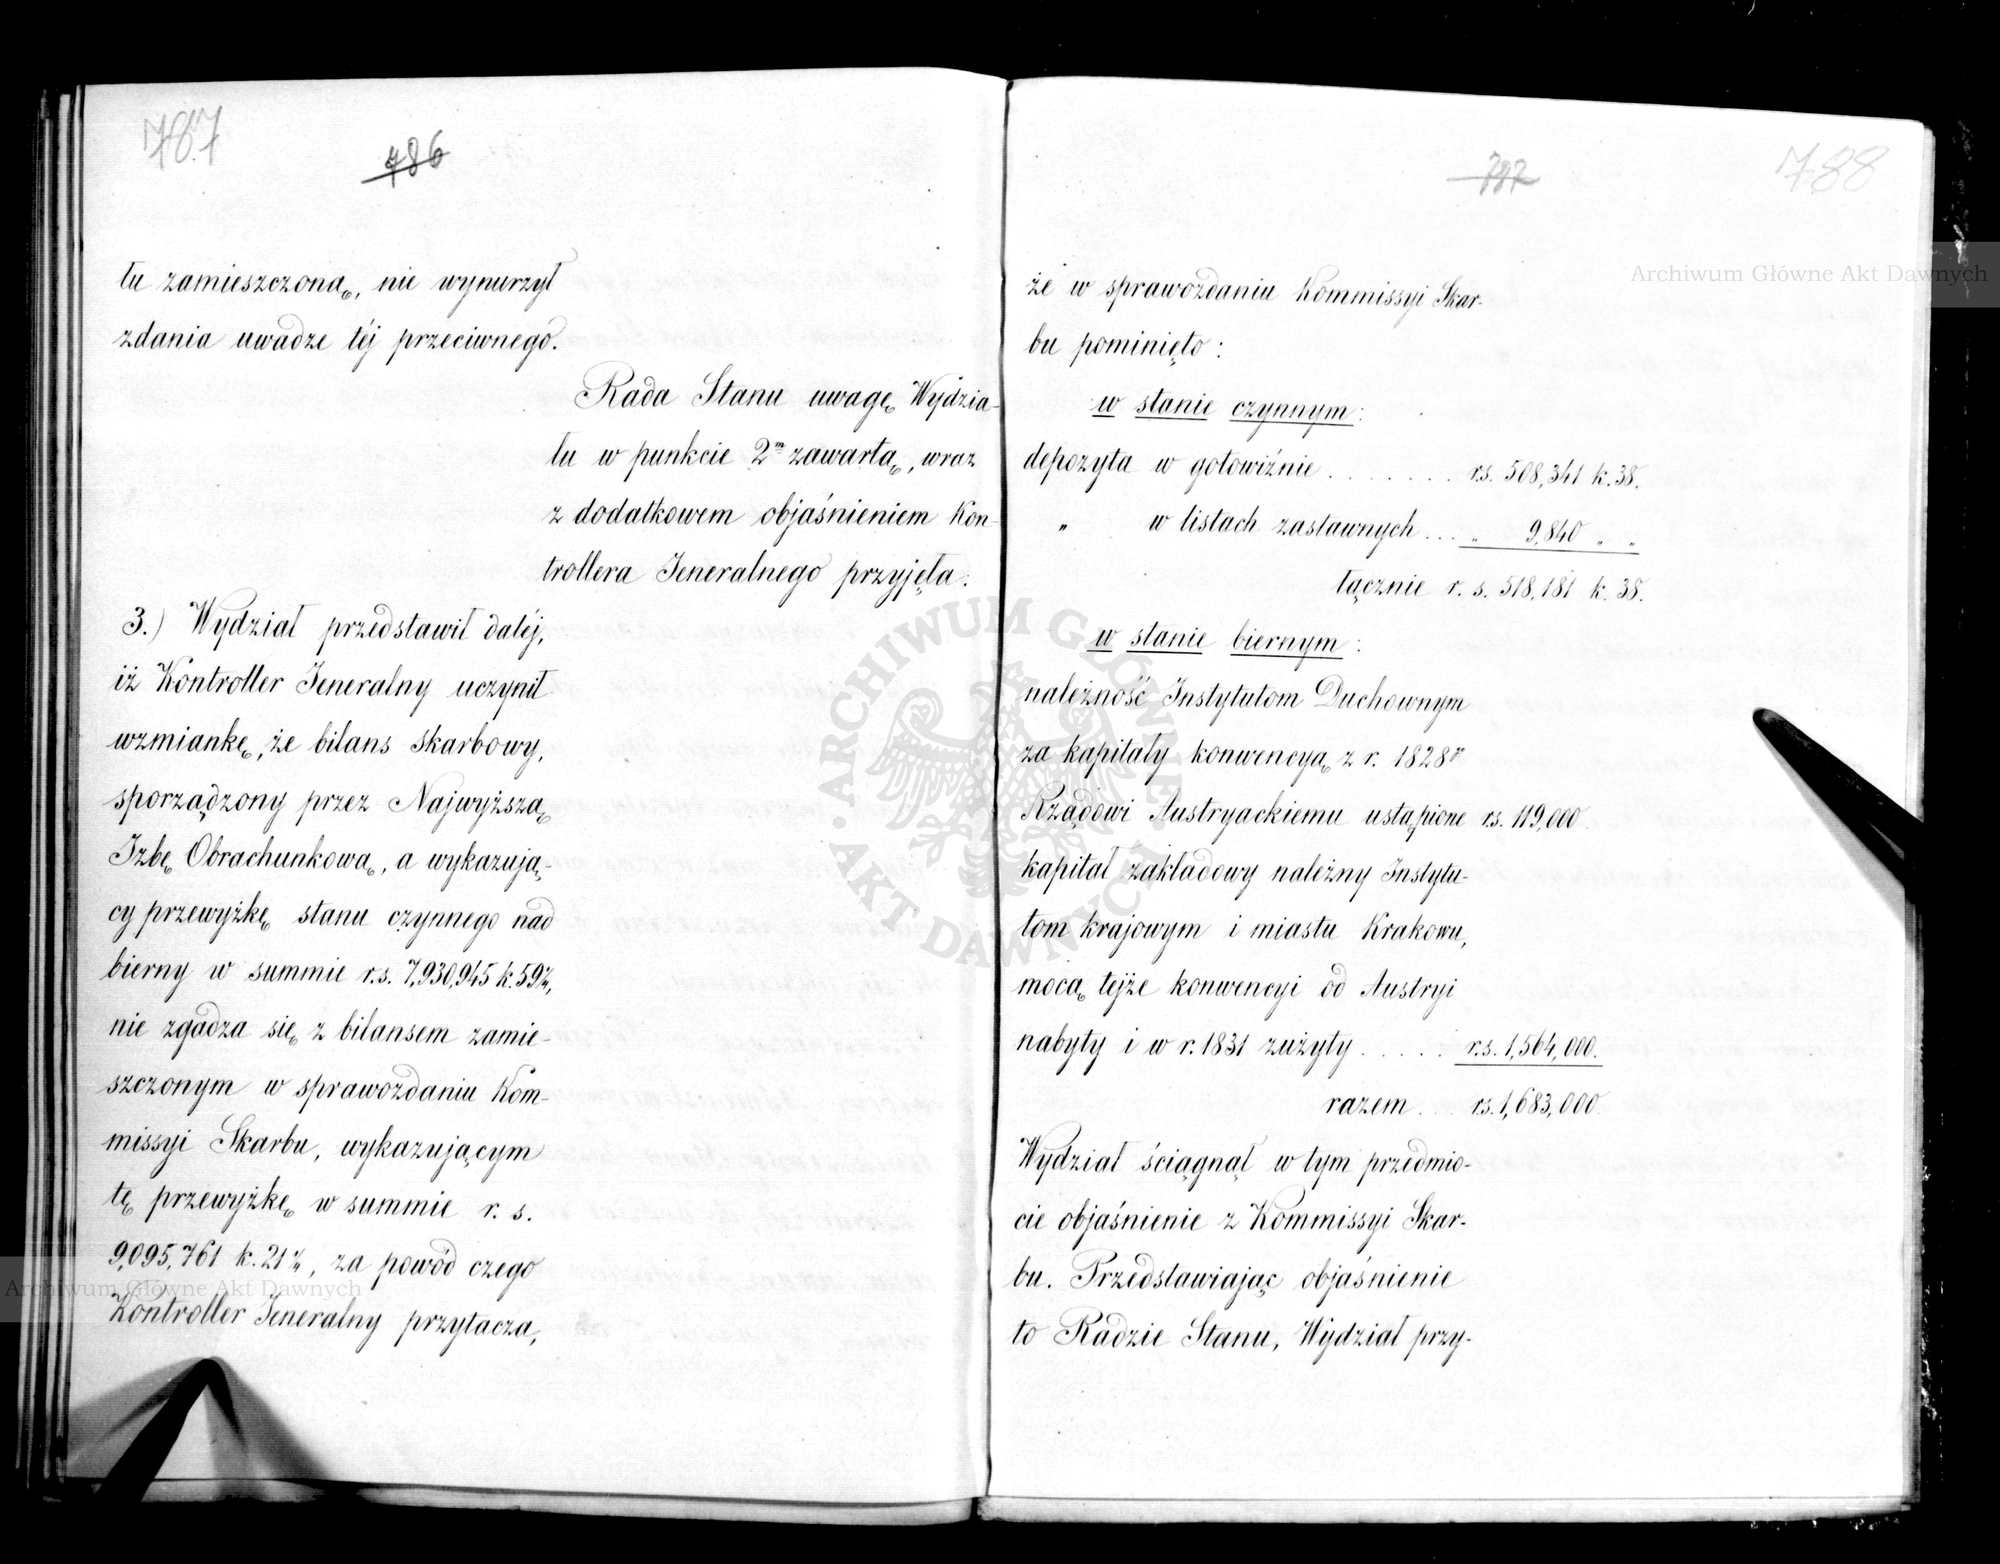 787
786
tu zamieszczoną, nie wynurzył
zdania uwadze téj przeciwnego.
Rada Stanu uwagę Wydzia-
łu w punkcie 2m zawartą, wraz
z dodatkowem objaśnieniem Kon-
trollera Jeneralnego przyjęła.
3.) Wydział przedstawił daléj,
iż Kontroller Jeneralny uczynił
wzmiankę, że bilans skarbowy,
sporządzony przez Najwyższą
Izbę Obrachunkową, a wykazują-
cy przewyżkę stanu czynnego nad
bierny w summie r.s. 7,930,945 k. 59½,
nie zgadza się z bilansem zamie-
szczonym w sprawozdaniu Kom-
missyi Skarbu, wykazującym
tę przewyżkę w summie r. s.
9,095,761 k. 21½, za powód czego
Kontroller Jeneralny przytacza,
787
788
że w sprawozdaniu Kommissyi Skar-
bu pominięto:
w stanie czynnym:
depozyta w gotowiźnie . . . . . . . rs. 508,341 k. 38.
„ w listach zastawnych . . . „ 9,840 „ „
łącznie r. s. 518,181 k. 38.
w stanie biernym:
należność Instytutom Duchownym
za kapitały konwencyą z r. 1828
Rządowi Austryackiemu ustąpione rs. 119,000.
kapitał zakładowy należny Instytu-
tom krajowym i miastu Krakowu,
mocą tejże konwencyi od Austryi
nabyty i w r. 1831 zużyty . . . . . r.s. 1,564,000.
razem . . rs. 1,683,000.
Wydział ściągnął w tym przedmio-
cie objaśnienie z Kommissyi Skar-
bu. Przedstawiając objaśnienie
to Radzie Stanu, Wydział przy-
Archiwum Główne Akt Dawnych
Archiwum Główne Akt Dawnych
ARCHIWUM GŁÓWNE AKT DAWNYCH